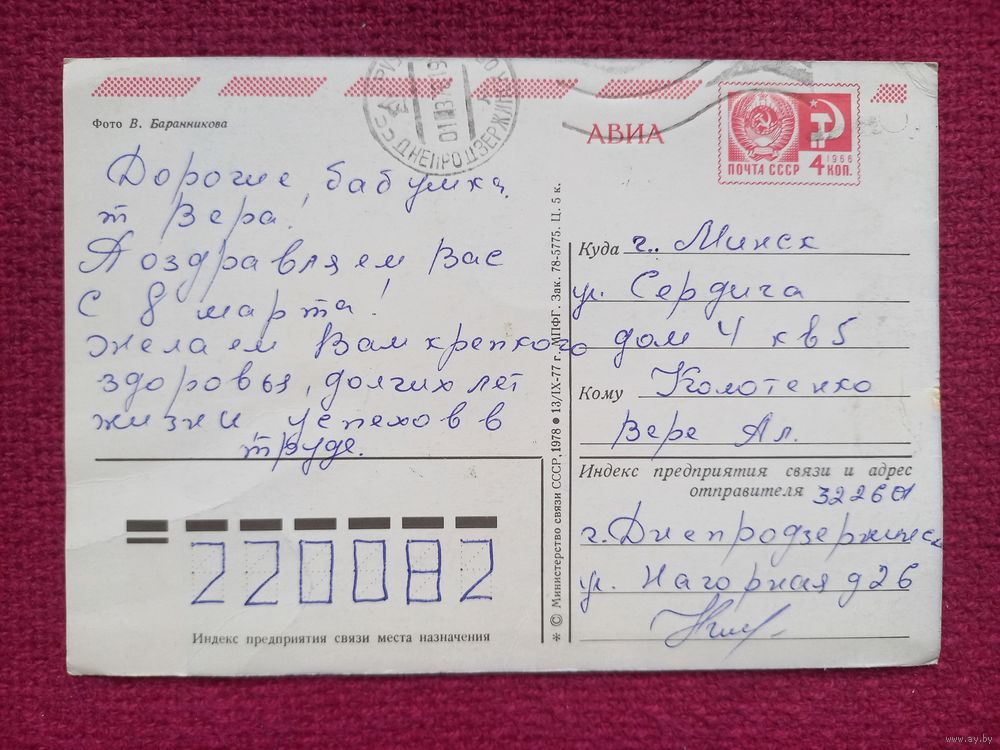 Фото В. Баранникова
ДНЕПРОДЗЕРЖИН
АВИА
1966
ПОЧТА СССР 4 КОП.
Дорогие бабушка,
т Вера!
Поздравляем Вас
С 8 марта!
Желаем Вам крепкого
здоровья, долгих лет
жизни успехов в
труде.
Куда г. Минск
ул. Сердича
дом 4 кв 5
Кому Колотенко
Вере Ал.
Индекс предприятия связи и адрес
отправителя 322601
г. Днепродзержинск
ул. Нагорная д 26
220082
Индекс предприятия связи места назначения
* © Министерство связи СССР, 1978 • 13/IX-77 г. МПФГ. Зак. 78-5775. Ц. 5 к.
www.ay.by